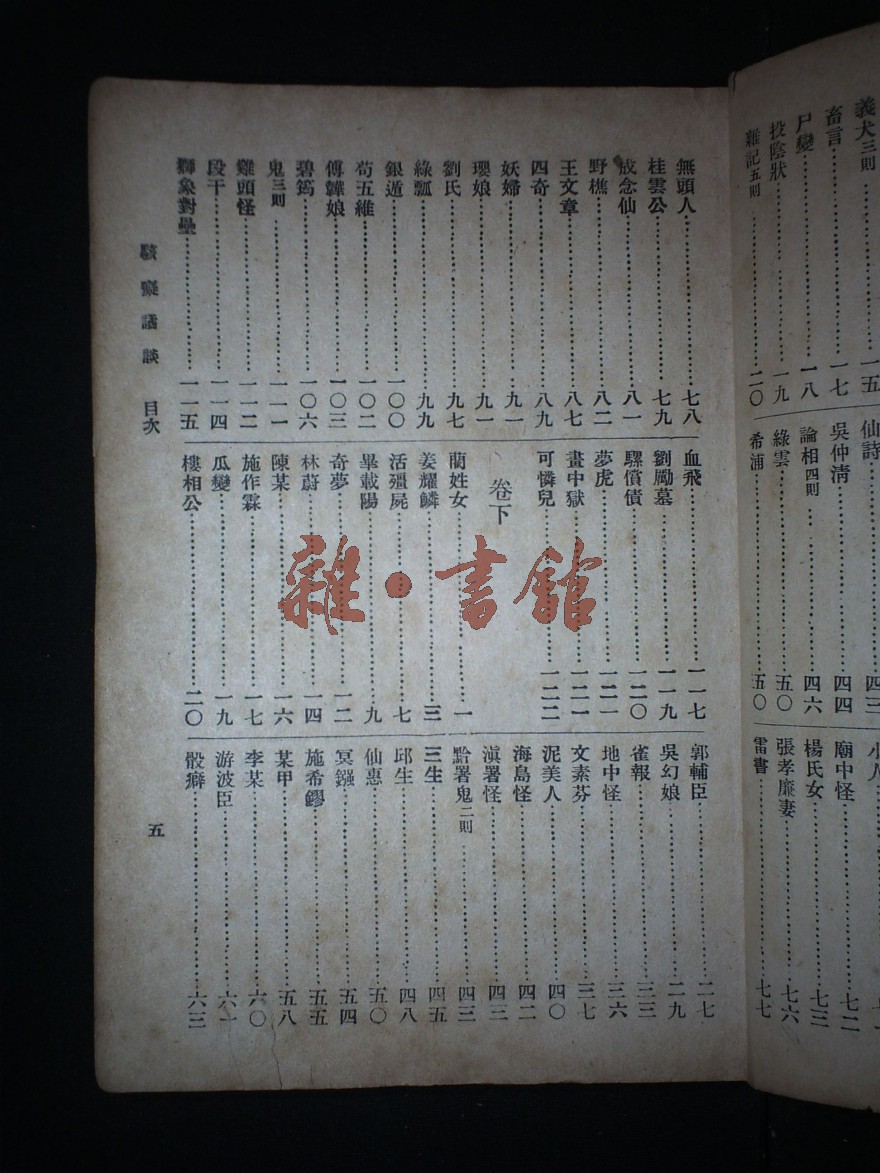 義犬三則……一五
畜言……一七
尸變……一八
投陰狀……一九
雜記五則……二〇
仙詩……四三
吳仲清……四四
論相四則……四六
綠雲……五〇
希浦……五〇
廟中怪……七二
楊氏女……七三
張孝廉妻……七六
雷書……七七
無頭人……七八
桂雲公……七九
成念仙……八一
野樵……八二
王文章……八七
四奇……八九
妖婦……九一
瓔娘……九一
劉氏……九七
綠瓢……九九
銀遁……一〇〇
苟五維……一〇二
傅韡娘……一〇三
碧筠……一〇六
鬼三則……一一一
雞頭怪……一一二
段干……一一四
獅象對壘……一一五
血飛……一一七
劉勵墓……一一九
騾償債……一二〇
夢虎……一二一
畫中獄……一二一
可憐兒……一二二
卷下
蘭姓女……一
姜耀鱗……三
活殭屍……七
畢載陽……九
奇夢……一二
林蔚……一四
陳某……一六
施作霖……一七
瓜變……一九
樓相公……二〇
郭輔臣……二七
吳幻娘……二九
雀報……三三
地中怪……三六
文素芬……三七
泥美人……四〇
海島怪……四二
滇署怪……四三
黔署鬼二則……四三
三生……四五
邱生……四八
仙惠……五〇
冥鏹……五四
施希鏐……五五
某甲……五八
李某……六〇
游波臣……六一
骰癖……六三
駭癡譎談 目次
五
雜·書館